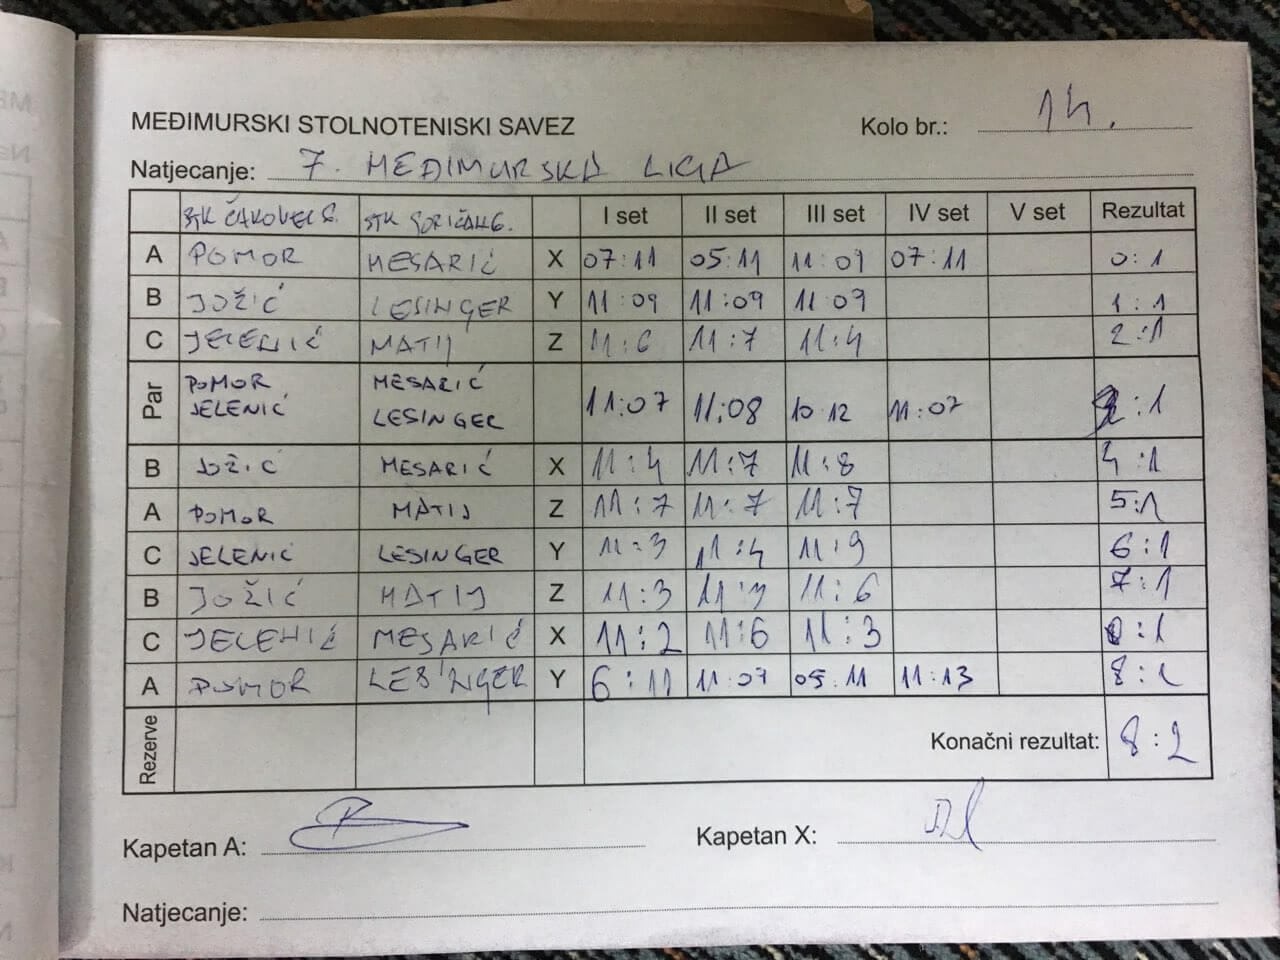 MEĐIMURSKI STOLNOTENISKI SAVEZ
Kolo br.: 14.
Natjecanje: 7. MEĐIMURSKA LIGA
STK ČAKOVEC 8. STK GORIČAN 6. I set II set III set IV set V set Rezultat
A POMOR MESARIĆ X 07:11 05:11 11:09 07:11 0:1
B JOŽIĆ LESINGER Y 11:09 11:09 11:09 1:1
C JELENIĆ MATIJ Z 11:6 11:7 11:4 2:1
Par POMOR MESARIĆ
JELENIĆ LESINGER 11:07 11:08 10:12 11:07 :1
B JOŽIĆ MESARIĆ X 11:4 11:7 11:8 4:1
A POMOR MATIJ Z 11:7 11:7 11:7 5:1
C JELENIĆ LESINGER Y 11:3 11:4 11:9 6:1
B JOŽIĆ MATIJ Z 11:3 11:3 11:6 7:1
C JELENIĆ MESARIĆ X 11:2 11:6 11:3 :1
A POMOR LESINGER Y 6:11 11:07 05:11 11:13 8:2
Rezerve Konačni rezultat: 8:2
Kapetan A: Kapetan X:
Natjecanje: